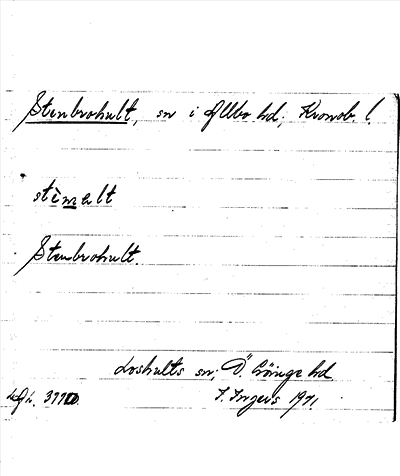 Stenbrohult, sn i Allbo hd, Kronob. l.
stèmalt
Stenbrohult.
Loshults sn, Ö. Göinge hd.
I. Ingers 1971.